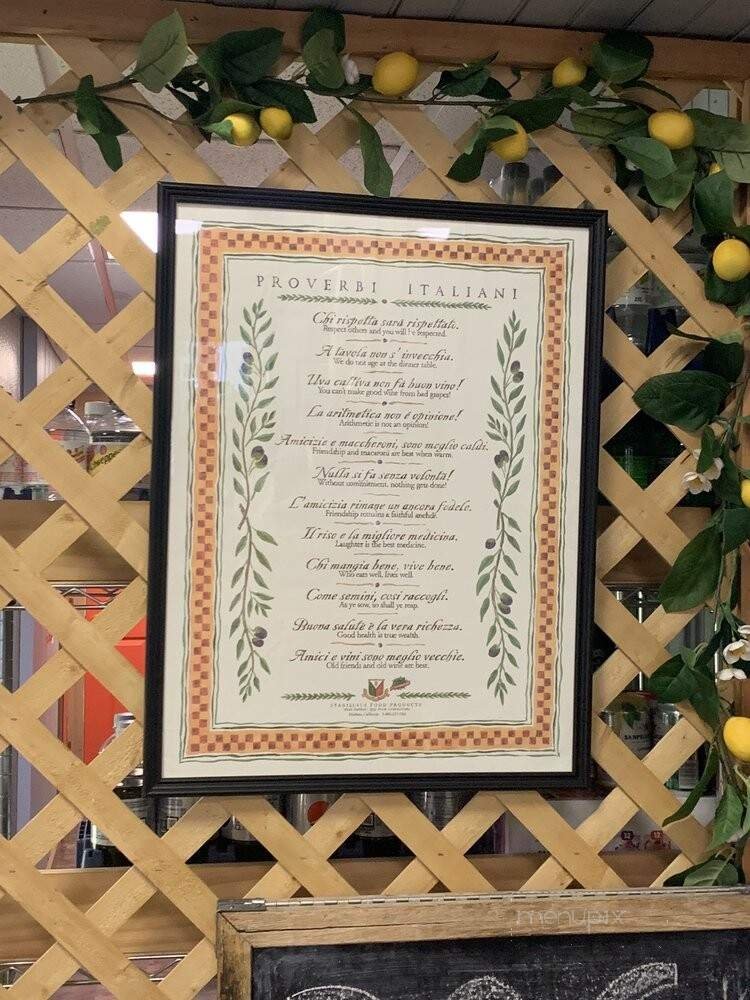 PROVERBI ITALIANI
Chi rispetta sarà rispettato.
Respect others and you will be respected.
A tavola non s' invecchia.
We do not age at the dinner table.
Uva cattiva non fà buon vino!
You can't make good wine from bad grapes!
La aritmetica non é opinione!
Arithmetic is not an opinion!
Amicizie e maccheroni, sono meglio caldi.
Friendship and macaroni are best when warm.
Nulla si fa senza volontà!
Without commitment, nothing gets done!
L'amicizia rimane un ancora fedele.
Friendship remains a faithful anchor.
Il riso e la migliore medicina.
Laughter is the best medicine.
Chi mangia bene, vive bene.
Who eats well, lives well.
Come semini, così raccogli.
As ye sow, so shall ye reap.
Buona salute è la vera richezza.
Good health is true wealth.
Amici e vini sono meglio vecchie.
Old friends and old wine are best.
STANISLAUS FOOD PRODUCTS
Modesto, California
menupix